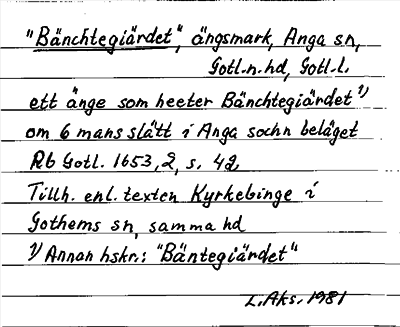 "Bänchtegiärdet", ängsmark, Anga sn,
Gotl.n.hd, Gotl.l.
ett änge som heeter Bänchtegiärdet 1)
om 6 mans slätt i Anga sochn beläget
Rb Gotl. 1653, 2, s. 42
Tillh. enl. texten Kyrkebinge i
Gothems sn, samma hd
1) Annan hskr.: "Bäntegiärdet"
L.Aks. 1981